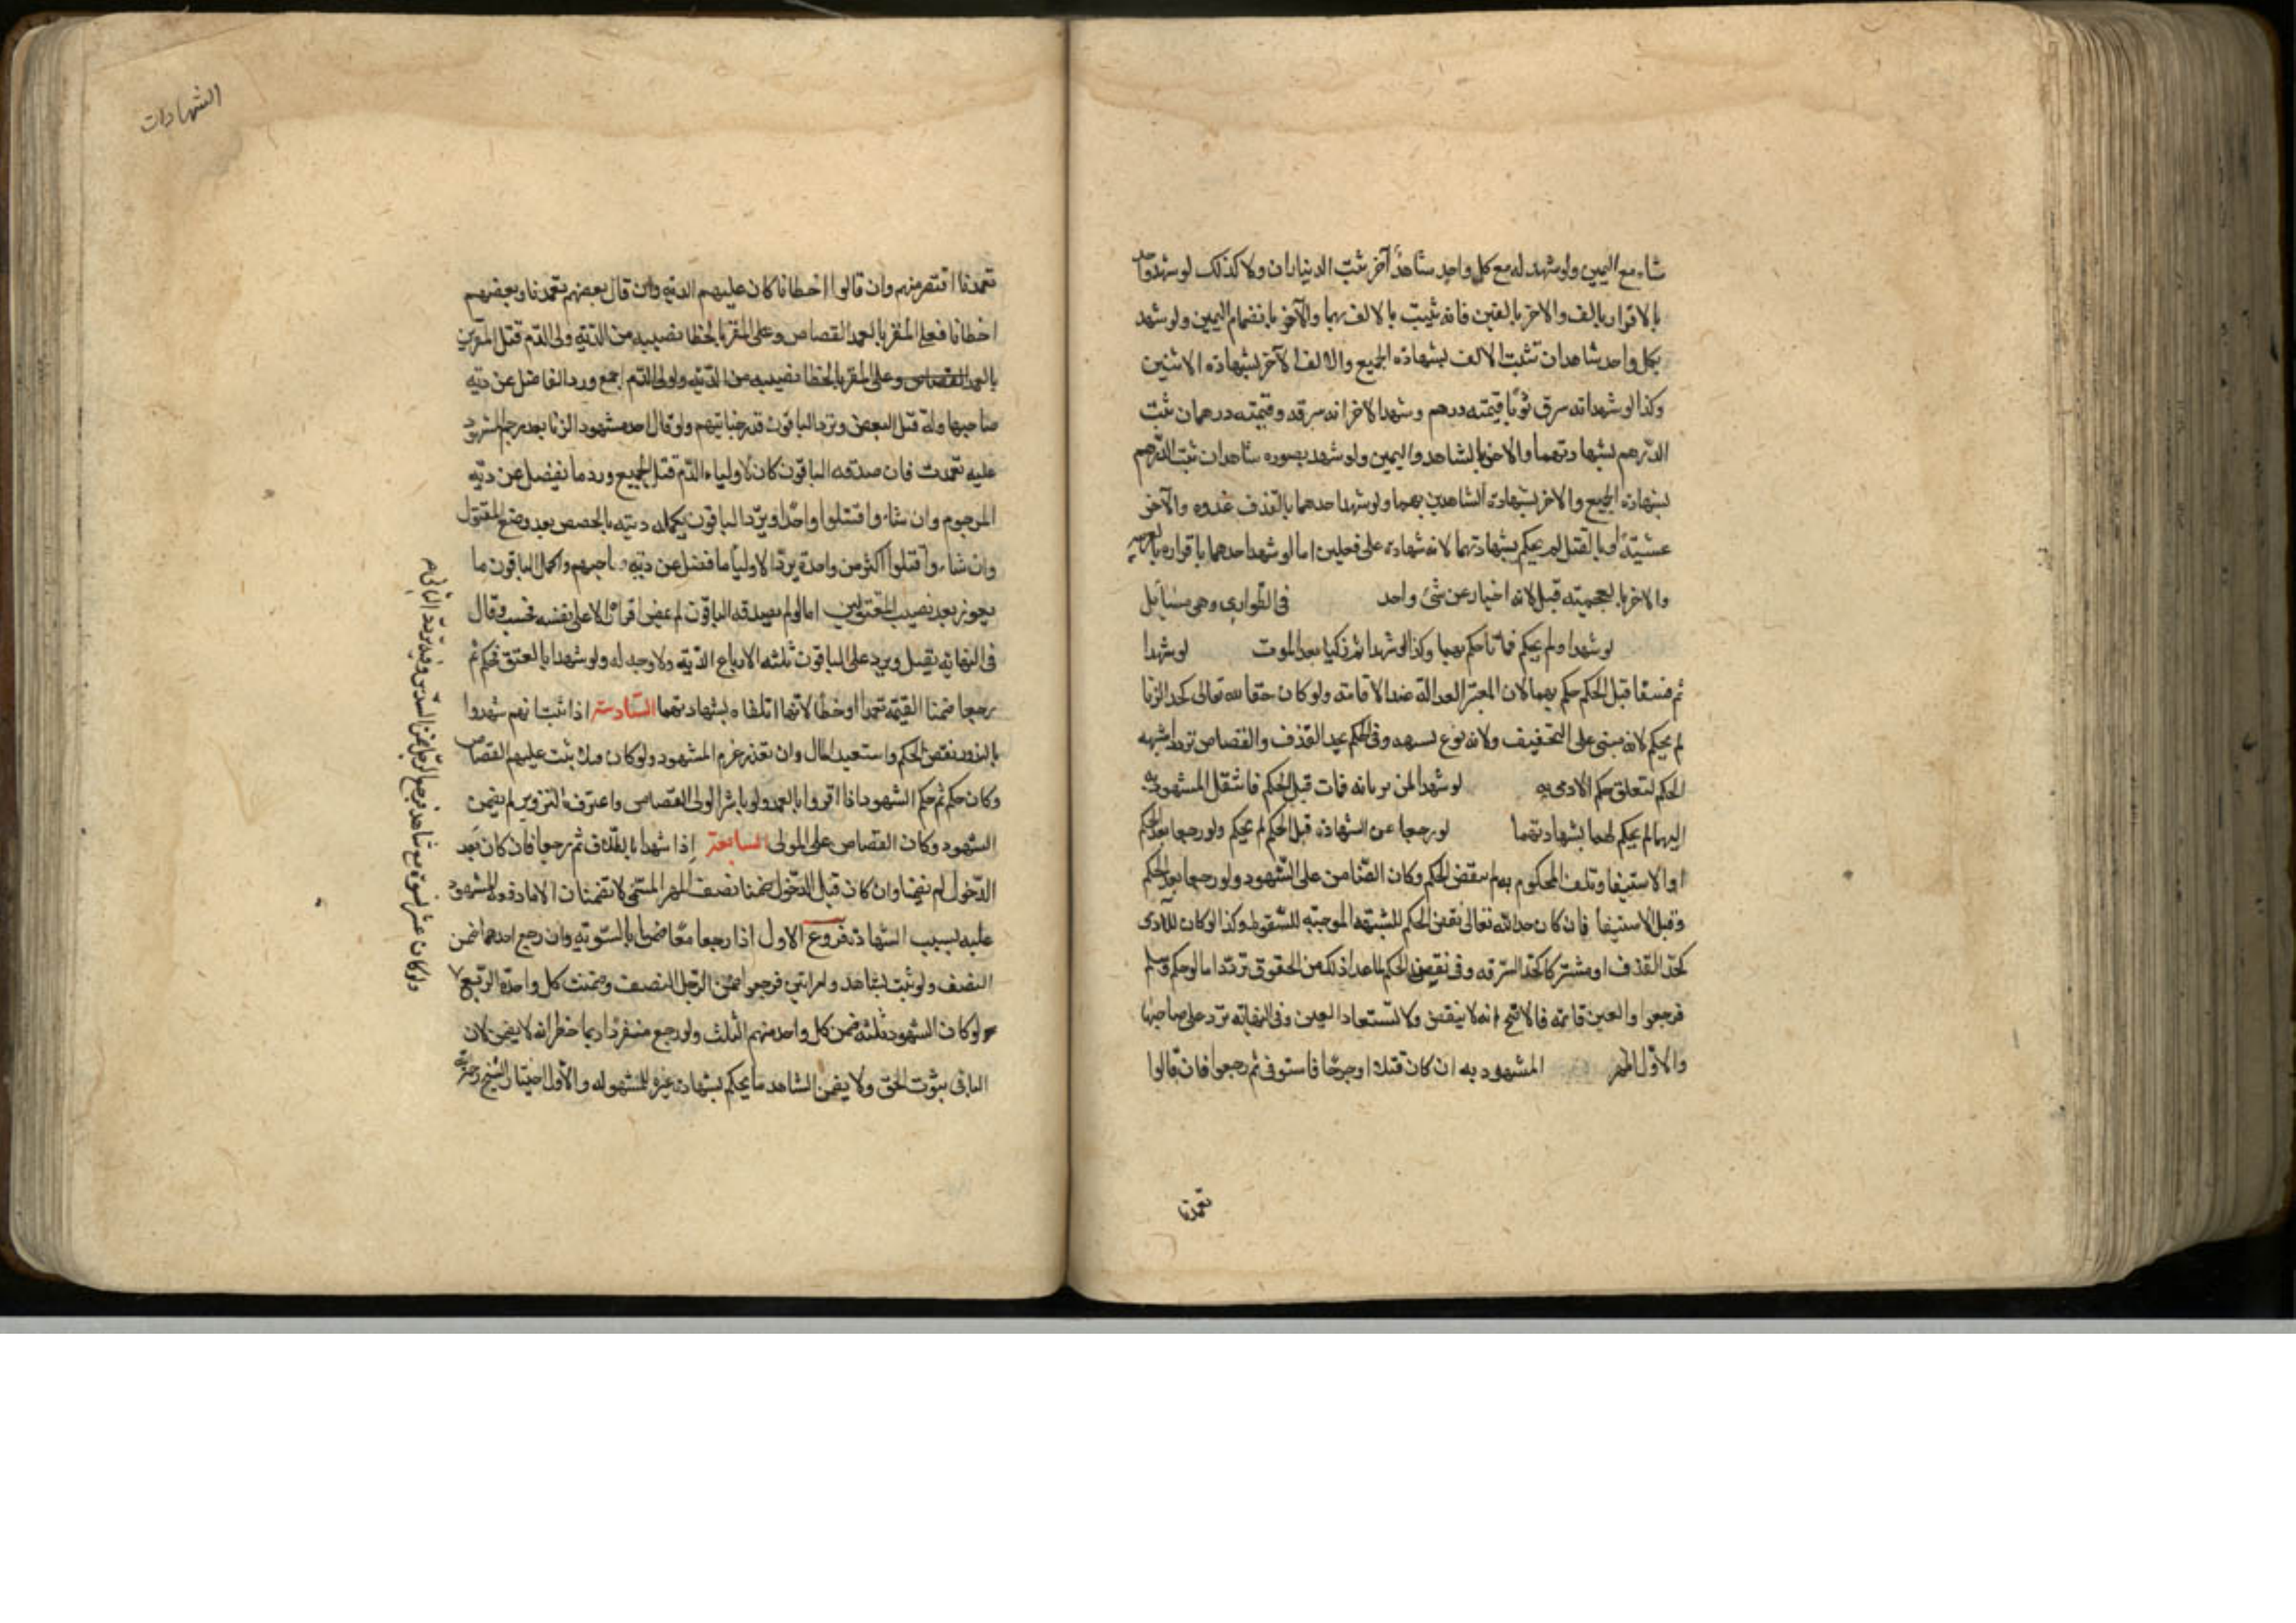 شاء مع اليمين ولو شهد له مع كل واحد شاهدٌ آخر ثبت الديناران ولا كذلك لو شهد واحد
بالاقرار بالف والاخر بالفين فانه يثبت بالالف بهما والآخر بانضمام اليمين ولو شهد
بكل واحد شاهدان تثبت الالف بشهادة الجميع والالف الآخر بشهادة الاثنين
وكذا لو شهد انه سرق ثوبًا قيمته درهم وشهد الاخر انه سرقه وقيمته درهمان ثبت
الدرهم بشهادتهما والاخر بالشاهد واليمين ولو شهد بصوره شاهدان ثبت الدرهم
بشهادة الجميع والاخر بشهادة الشاهدين بهما ولو شهد احدهما بالقذف غدوه والآخر
عشيّةً او بالقتل لم يحكم بشهادتهما لانه شهادة على فعلين اما لو شهد احدهما باقراره بالعربيه
والاخر بالعجميته قبل لانه اخبار عن شئ واحد في الطوارى وهى مسائل
لو شهدا ولم يحكم فماتا حكم بهما وكذا لو شهدا ثم زكيا بعد الموت لو شهدا
ثم فسقا قبل الحكم حكم بهما لان المعتبر العدالة عند الاقامته ولو كان حقا لله تعالى كحد الزنا
لم يحكم لانه مبنى على التخفيف ولانه نوع شبهه وفى الحكم بحد القذف والقصاص تردد اشبهه
الحكم لتعلق حكم الادمى به لو شهدا لمن يرثانه فمات قبل الحكم فانتقل المشهود به
اليهما لم يحكم لهما بشهادتهما لو رجعا عن الشهادة قبل الحكم لم يحكم ولو رجعا بعد الحكم
او الاستيفا وتلف المحكوم به لم ينقض الحكم وكان الضّامن على الشّهود ولو رجعا بعد الحكم
وقبل الاستيفا فان كان حد الله تعالى نقض الحكم للشبهه الموجبته للسّقوط وكذا لو كان للآدمى
كحدّ القذف او مشتركا كحدّ السّرقه وفى نقض الحكم لما عدا ذلك من الحقوق تردّد اما لو حكم وسلم
فرجعوا والعين قائمه فالاصح انه لا ينقض ولا تستعاد العين وفى النهايته تردّ على صاحبها
والاوّل اظهر المشهود به ان كان قتلا او جرحًا فاستوفى ثم رجعوا فان قالوا
تعمدنا
الشهادات
تعمدنا اقتص منهم وان قالوا اخطانا كان عليهم الديه وان قال بعضهم تعمدنا وبعضهم
اخطانا فعلى المقر بالعمد القصاص وعلى المقر بالخطا نصيبه من الدّيه ولولى الدّم قتل المقرين
بالعمد القصاص وعلى المقر بالخطا نصيبه من الدّيه ولولى الدّم اجمع ورد الفاضل عن ديه
صاحبها وله قتل البعض ويرد الباقون قدر جنايتهم ولو قال احد شهود الزنا بعد رجم المشهود
عليه تعمدت فان صدقه الباقون كان لاولياء الدّم قتل الجميع ورد ما يفضل عن ديّه
المرجوم وان شاءوا قتلوا واحدًا ويردّ الباقون تكمله ديته بالحصص بعد وضع المقتول
وان شاءوا قتلوا اكثر من واحدة يردّ الاوليا ما فضل عن ديه صاحبهم واكمل الباقون ما
يعوز بعد نصيب المقتولين اما لو لم يصدقه الباقون لم يمض اقراره الا على نفسه فحسب وقال
فى النهايه يقبل ويرد على الباقون ثلثه الارباع الدّيه ولا وجه له ولو شهدا بالعتق فحكم ثم
رجعا ضمنا القيمه تعمدا او خطا لانهما اتلفاه بشهادتهما السّادسة اذا ثبت انهم شهدوا
بالزور نقض الحكم واستعيد المال وان تعذر غرم المشهود ولو كان قتلا ثبت عليهم القصاص
وكان حكم ثم حكم الشهود اذا اقروا بالعمد ولو باشر الولى القصاص واعترف بالتزوير لم يضمن
الشهود وكان القصاص على المولى السابعة إذا شهدا بالطلاق ثم رجعا فان كان بعد
الدّخول لم يضمنا وان كان قبل الدّخول ضمنا نصف المهر المسمّى لا يضمنان الا ما دفعه المشهود
عليه بسبب الشهادة فروع الاول اذا رجعا معًا ضمنا بالسّويّه وان رجع احدهما ضمن
النصف ولو ثبت بشاهد وامراتين فرجعوا ضمن الرّجل النصف وضمنت كل واحدة الربّع
ولو كان الشهود ثلثه ضمن كل واحد منهم الثلث ولو رجع منفردًا ربما خطر انه لا يضمن لان
الباقى ثبوت الحق ولا يضمن الشاهد ما يحكم بشهادة غيره للمشهود له والأول اختيار الشيخ رحمه الله
ولو كان عشر نسوة مع شاهد فرجع الرّجل ضمن السّدس وفيه تردّد الثانى